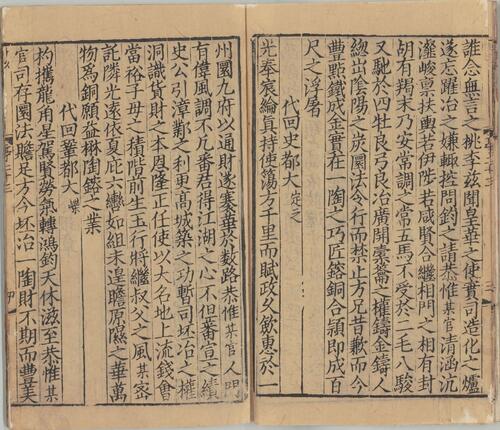 誰念無言之桃李茲聞皇華之使實司造化之爐
遂忘躍冶之嫌輙控問鈞之請恭惟某官清涵沆
瀣峻禀扶輿若伊陟若咸賢合繼相門之相有封
胡有羯末乃安當調之常五馬不受於二毛八駿
又馳於四牡良弓良冶廣開橐籥之權鑄金鑄人
緫出陰陽之炭圜法令行而禁止方兄昔歉而今
豐點鐵成金實在一陶之巧匠鎔銅合頴即成百
尺之浮屠
代回史都大定之
光奉衮綸眞持使蕩方千里而賦政久歛惠於一
州圜九府以通財遂褰華於數路恭惟某官人門
有偉風調不凡番君得江湖之心不但蕃宣之績
史公引漳鄴之利更高城築之功暫司坯冶之權
洞識貨財之本恩隆正任使以大名地上流錢會
當裕子母之積階前生玉行將繼叔父之風某宻
託隣光遠依夏庇六轡如組未遑瞻原隰之華萬
物爲銅願益栁陶鎔之業
代回鞏都大嶸
杓攜龍角星駕賢勞氣轉鴻鈞天休滋至恭惟某
官司存圜法瞻足方今坯冶一陶財不期而豐美